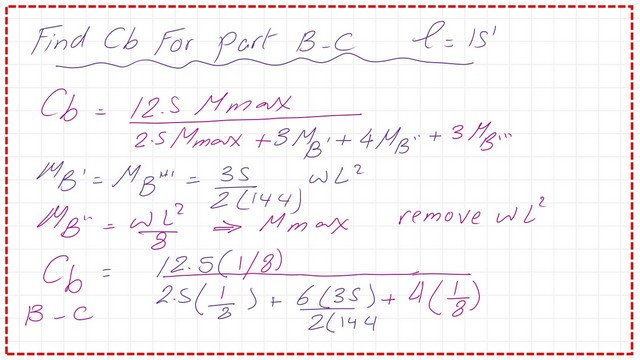 Find Cb For Part B-C l=15'
Cb = 12.5 Mmax / 2.5 Mmax + 3MB' + 4MB'' + 3MB'''
MB' = MB''' = 35 / 2(144) wL²
MB'' = wL² / 8 ⇒ Mmax remove wL²
Cb = 12.5(1/8) / 2.5(1/8) + 6(35) / 2(144 + 4(1/8)
B-C